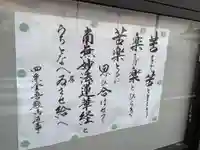 苦をば苦とさとり
楽をば楽とひらき
苦楽ともに
思ひ合はせて
南無妙法蓮華経と
うちとなへゐさせ給へ
四条金吾殿御返事